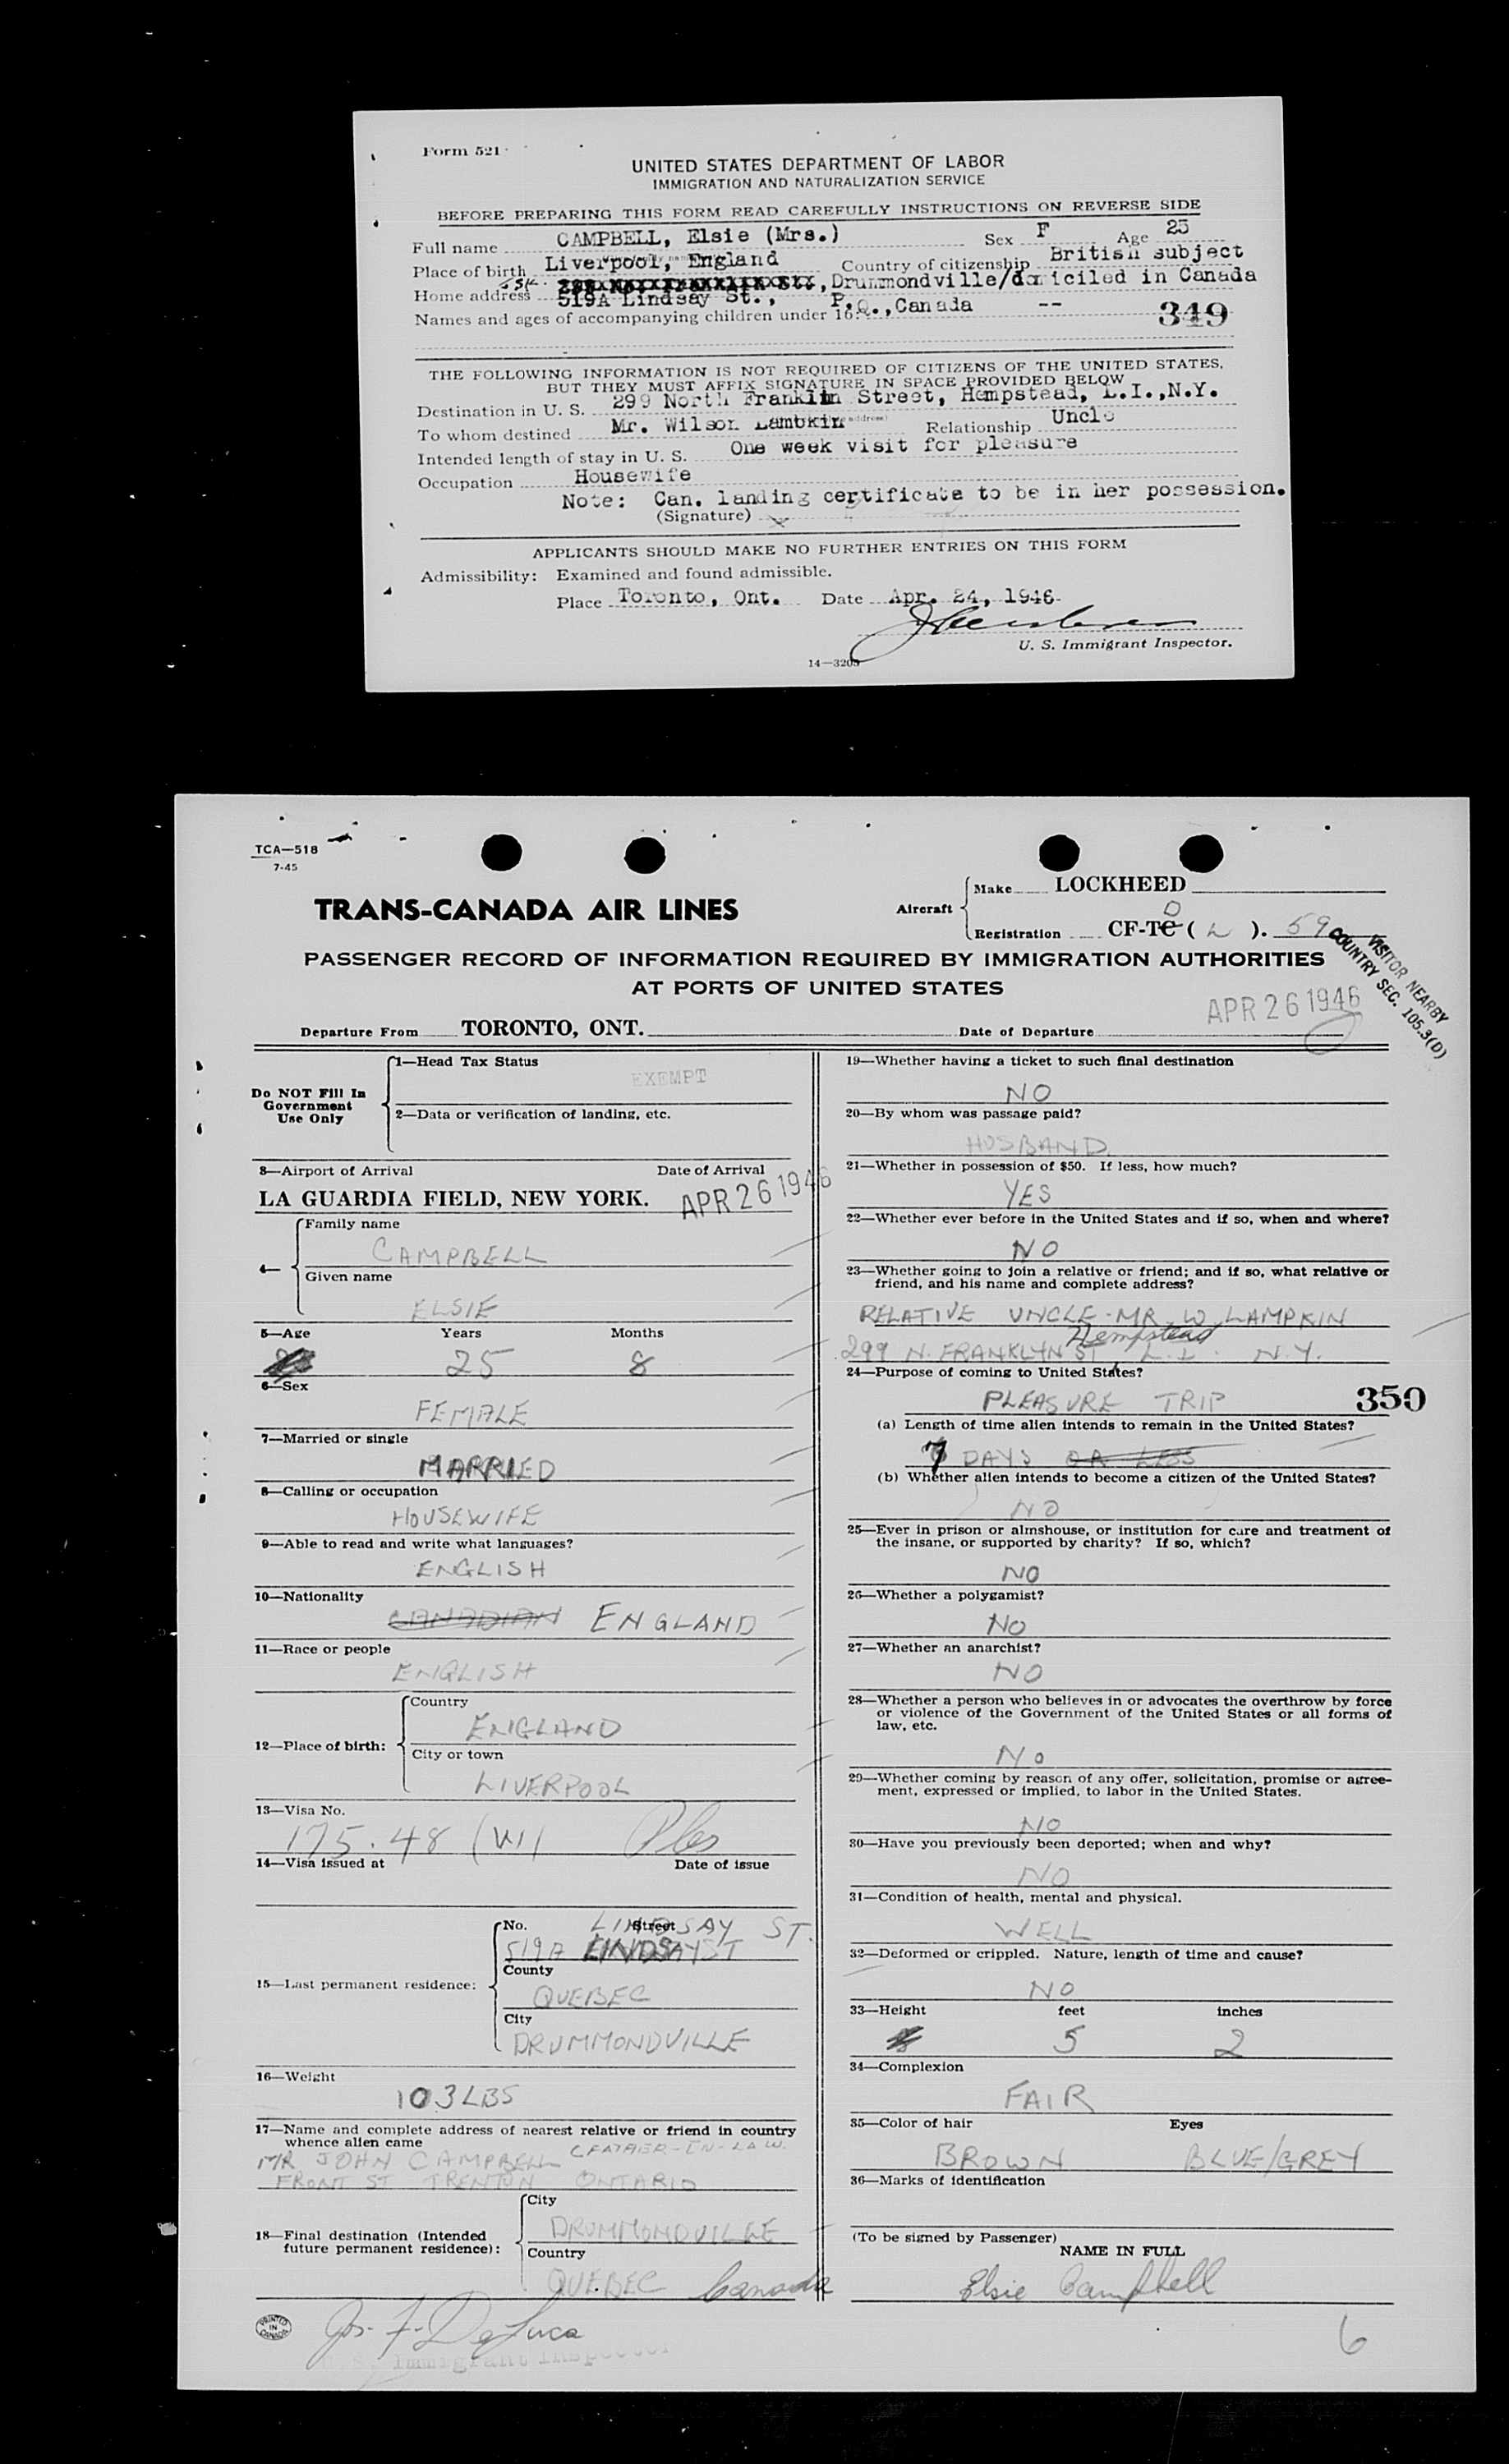 Form 521
UNITED STATES DEPARTMENT OF LABOR
IMMIGRATION AND NATURALIZATION SERVICE
BEFORE PREPARING THIS FORM READ CAREFULLY INSTRUCTIONS ON REVERSE SIDE
Full name CAMPBELL, Elsie (Mrs.) Sex F Age 25
Place of birth Liverpool, England Country of citizenship British subject
Home address 519A Lindsay St., Drummondville/domiciled in Canada
P.Q., Canada
Names and ages of accompanying children under 16: --
349
THE FOLLOWING INFORMATION IS NOT REQUIRED OF CITIZENS OF THE UNITED STATES,
BUT THEY MUST AFFIX SIGNATURE IN SPACE PROVIDED BELOW
Destination in U. S. 299 North Franklin Street, Hempstead, L.I.,N.Y.
To whom destined Mr. Wilson Lambkin Relationship Uncle
Intended length of stay in U. S. One week visit for pleasure
Occupation Housewife
Note: Can. landing certificate to be in her possession.
(Signature) x
APPLICANTS SHOULD MAKE NO FURTHER ENTRIES ON THIS FORM
Admissibility: Examined and found admissible.
Place Toronto, Ont. Date Apr. 24, 1946
U. S. Immigrant Inspector.
14—3205
TCA—518
7-45
TRANS-CANADA AIR LINES
Aircraft
Make LOCKHEED
Registration CF-TC D ( L ). 59
VISITOR NEARBY
COUNTRY SEC. 105.3(D)
PASSENGER RECORD OF INFORMATION REQUIRED BY IMMIGRATION AUTHORITIES
AT PORTS OF UNITED STATES
Departure From TORONTO, ONT. Date of Departure APR 26 1946
Do NOT Fill In
Government
Use Only
1—Head Tax Status
EXEMPT
2—Data or verification of landing, etc.
3—Airport of Arrival Date of Arrival
LA GUARDIA FIELD, NEW YORK. APR 26 1946
4—
Family name
CAMPBELL
Given name
ELSIE
5—Age Years Months
25 8
6—Sex
FEMALE
7—Married or single
MARRIED
8—Calling or occupation
HOUSEWIFE
9—Able to read and write what languages?
ENGLISH
10—Nationality
CANADIAN ENGLAND
11—Race or people
ENGLISH
12—Place of birth:
Country
ENGLAND
City or town
LIVERPOOL
13—Visa No.
175.48 (VI)
14—Visa issued at Date of issue
15—Last permanent residence:
No. Street
LINDSAY ST.
519A LINDSAY ST
County
QUEBEC
City
DRUMMONDVILLE
16—Weight
103 LBS
17—Name and complete address of nearest relative or friend in country
whence alien came
MR JOHN CAMPBELL (FATHER-IN-LAW.
FRONT ST TRENTON ONTARIO
18—Final destination (Intended
future permanent residence):
City
DRUMMONDVILLE
Country
QUEBEC Canada
PRINTED IN CANADA
Jos. F. DeLuca
U. S. Immigrant Inspector
19—Whether having a ticket to such final destination
NO
20—By whom was passage paid?
HUSBAND
21—Whether in possession of $50. If less, how much?
YES
22—Whether ever before in the United States and if so, when and where?
NO
23—Whether going to join a relative or friend; and if so, what relative or
friend, and his name and complete address?
RELATIVE UNCLE - MR. W. LAMPKIN
Hempstead
299 N. FRANKLYN ST L.I. N.Y.
24—Purpose of coming to United States?
PLEASURE TRIP
350
(a) Length of time alien intends to remain in the United States?
7 DAYS OR LESS
(b) Whether alien intends to become a citizen of the United States?
NO
25—Ever in prison or almshouse, or institution for care and treatment of
the insane, or supported by charity? If so, which?
NO
26—Whether a polygamist?
NO
27—Whether an anarchist?
NO
28—Whether a person who believes in or advocates the overthrow by force
or violence of the Government of the United States or all forms of
law, etc.
No
29—Whether coming by reason of any offer, solicitation, promise or agree-
ment, expressed or implied, to labor in the United States.
NO
30—Have you previously been deported; when and why?
NO
31—Condition of health, mental and physical.
WELL
32—Deformed or crippled. Nature, length of time and cause?
NO
33—Height feet inches
5 2
34—Complexion
FAIR
35—Color of hair Eyes
BROWN BLUE/GREY
36—Marks of identification
(To be signed by Passenger)
NAME IN FULL
Elsie Campbell
6